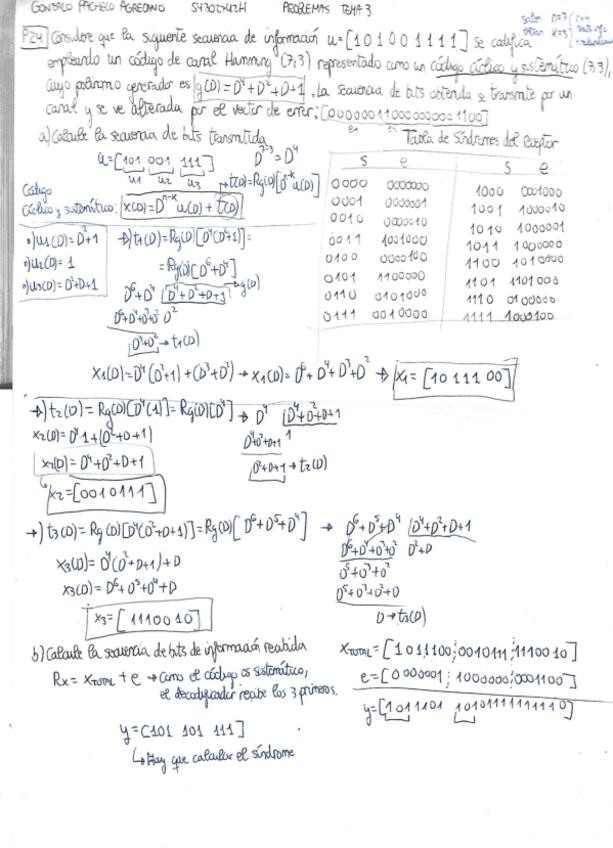 GONZALO PACHECO AGREDANO 54302742H PROBLEMAS TEMA 3
P24 Considere que la siguiente secuencia de información u=[101001111] se codifica
empleando un código de canal Hamming (7,3) representado como un código cíclico y sistemático (7,3),
cuyo polinomio generador es g(D)=D⁴+D²+D+1. La secuencia de bits obtenida se transmite por un
canal y se ve alterada por el vector de error: [000000110000000001100]
a) Calcule la secuencia de bits transmitida
Tabla de Síndromes del Receptor
u=[101 001 111] D⁷⁻³=D⁴
u1 u2 u3 → t(D)=Rg(D)[Dⁿ⁻ᵏu(D)]
Código
Cíclico y sistemático: x(D)=Dⁿ⁻ᵏu(D)+t(D)
S e S e
0000 0000000 1000 0001000
0001 0000001 1001 1000010
0010 0000010 1010 1000001
0011 1001000 1011 1000000
0100 0000100 1100 1010000
0101 1100000 1101 1101000
0110 0101000 1110 0100000
0111 0010000 1111 1000100
•)u1(D)=D²+1
•)u2(D)=1
•)u3(D)=D²+D+1
→)t1(D)=Rg(D)[D⁴(D²+1)]=
=Rg(D)[D⁶+D⁴]
D⁶+D⁴ D⁴+D²+D+1 → g(D)
D⁶+D⁴+D³+D² D²
D³+D² → t1(D)
x1(D)=D⁴(D²+1)+(D³+D²) → x1(D)=D⁶+D⁴+D³+D² → x1=[1011100]
→)t2(D)=Rg(D)[D⁴(1)]=Rg(D)[D⁴] → D⁴ D⁴+D²+D+1
x2(D)=D⁴·1+(D²+D+1) D⁴+D²+D+1 1
x2(D)=D⁴+D²+D+1 D²+D+1 → t2(D)
x2=[0010111]
→)t3(D)=Rg(D)[D⁴(D²+D+1)]=Rg(D)[D⁶+D⁵+D⁴] → D⁶+D⁵+D⁴ D⁴+D²+D+1
x3(D)=D⁴(D²+D+1)+D D⁶+D⁴+D³+D² D²+D
D⁵+D³+D²
x3(D)=D⁶+D⁵+D⁴+D D⁵+D³+D²+D
x3=[1110010] D → t3(D)
b) Calcule la secuencia de bits de información recibida
xTOTAL=[1011100;0010111;1110010]
Rx=xTOTAL+e → como el código es sistemático,
el decodificador recibe los 3 primeros.
e=[0000001;1000000;0001100]
y=[101110110101111111110]
y=[101 101 111]
↳ Hay que calcular el síndrome